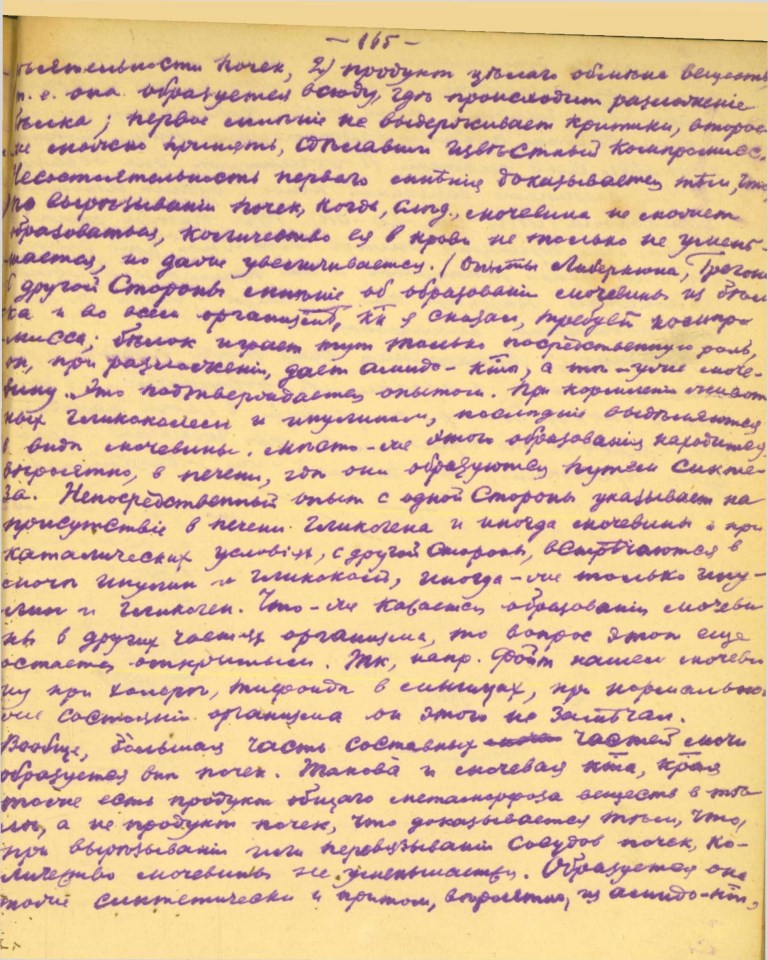 — 165 —
дѣятельности почек, 2) продукт цѣлаго обмѣна веществ,
т. е. она образуется всюду, гдѣ происходит разложеніе
бѣлка; первое мнѣніе не выдерживает критики, второе
же можно принять, сдѣлавши извѣстный компромисс.
Несостоятельность перваго мнѣнія доказывается тѣм, что,
по вырѣзываніи почек, когда, слѣд., мочевина не может
образоваться, количество ея в крови не только не умень-
шается, но даже увеличивается. (Опыты
С другой стороны мнѣніе об образованіи мочевины из бѣл-
ка и во всем организмѣ, кк я сказал, требует компро-
мисса; бѣлок играет тут только посредственную роль,
он, при разложеніи, дает амидо-кты, а тѣ - уже моче-
вину. Это подтверждается опытом. При кормленіи живот-
ных гликоколем и , послѣдніе выдѣляются
в видѣ мочевины. Мѣсто-же этого образованія находится,
вѣроятно, в печени, гдѣ они образуются путем синте-
за. Непосредственный опыт с одной стороны указывает на
присутствіе в печени гликогена и иногда мочевины и при
условіях, с другой стороны, встрѣчаются в
мочѣ и , иногда-же только
и гликоген. Что-же касается образованія мочеви-
ны в других частях организма, то вопрос этот еще
остается открытым. Тк, напр. Фойт нашел мочеви-
ну при холерѣ, тифоидѣ в мышцах, при нормальном-
же состояніи организма он этого не замѣчал.
Вообще, большая часть составных частей мочи
образуется внѣ почек. Такова и мочевая кта, края
тоже есть продукт общаго метаморфоза веществ в тѣ-
лѣ, а не продукт почек, что доказывается тѣм, что,
при вырѣзываніи или перевязываніи сосудов почек, ко-
личество мочевины не уменьшается. Образуется она
тоже синтетически и притом, вѣроятно, из амидо-кт,